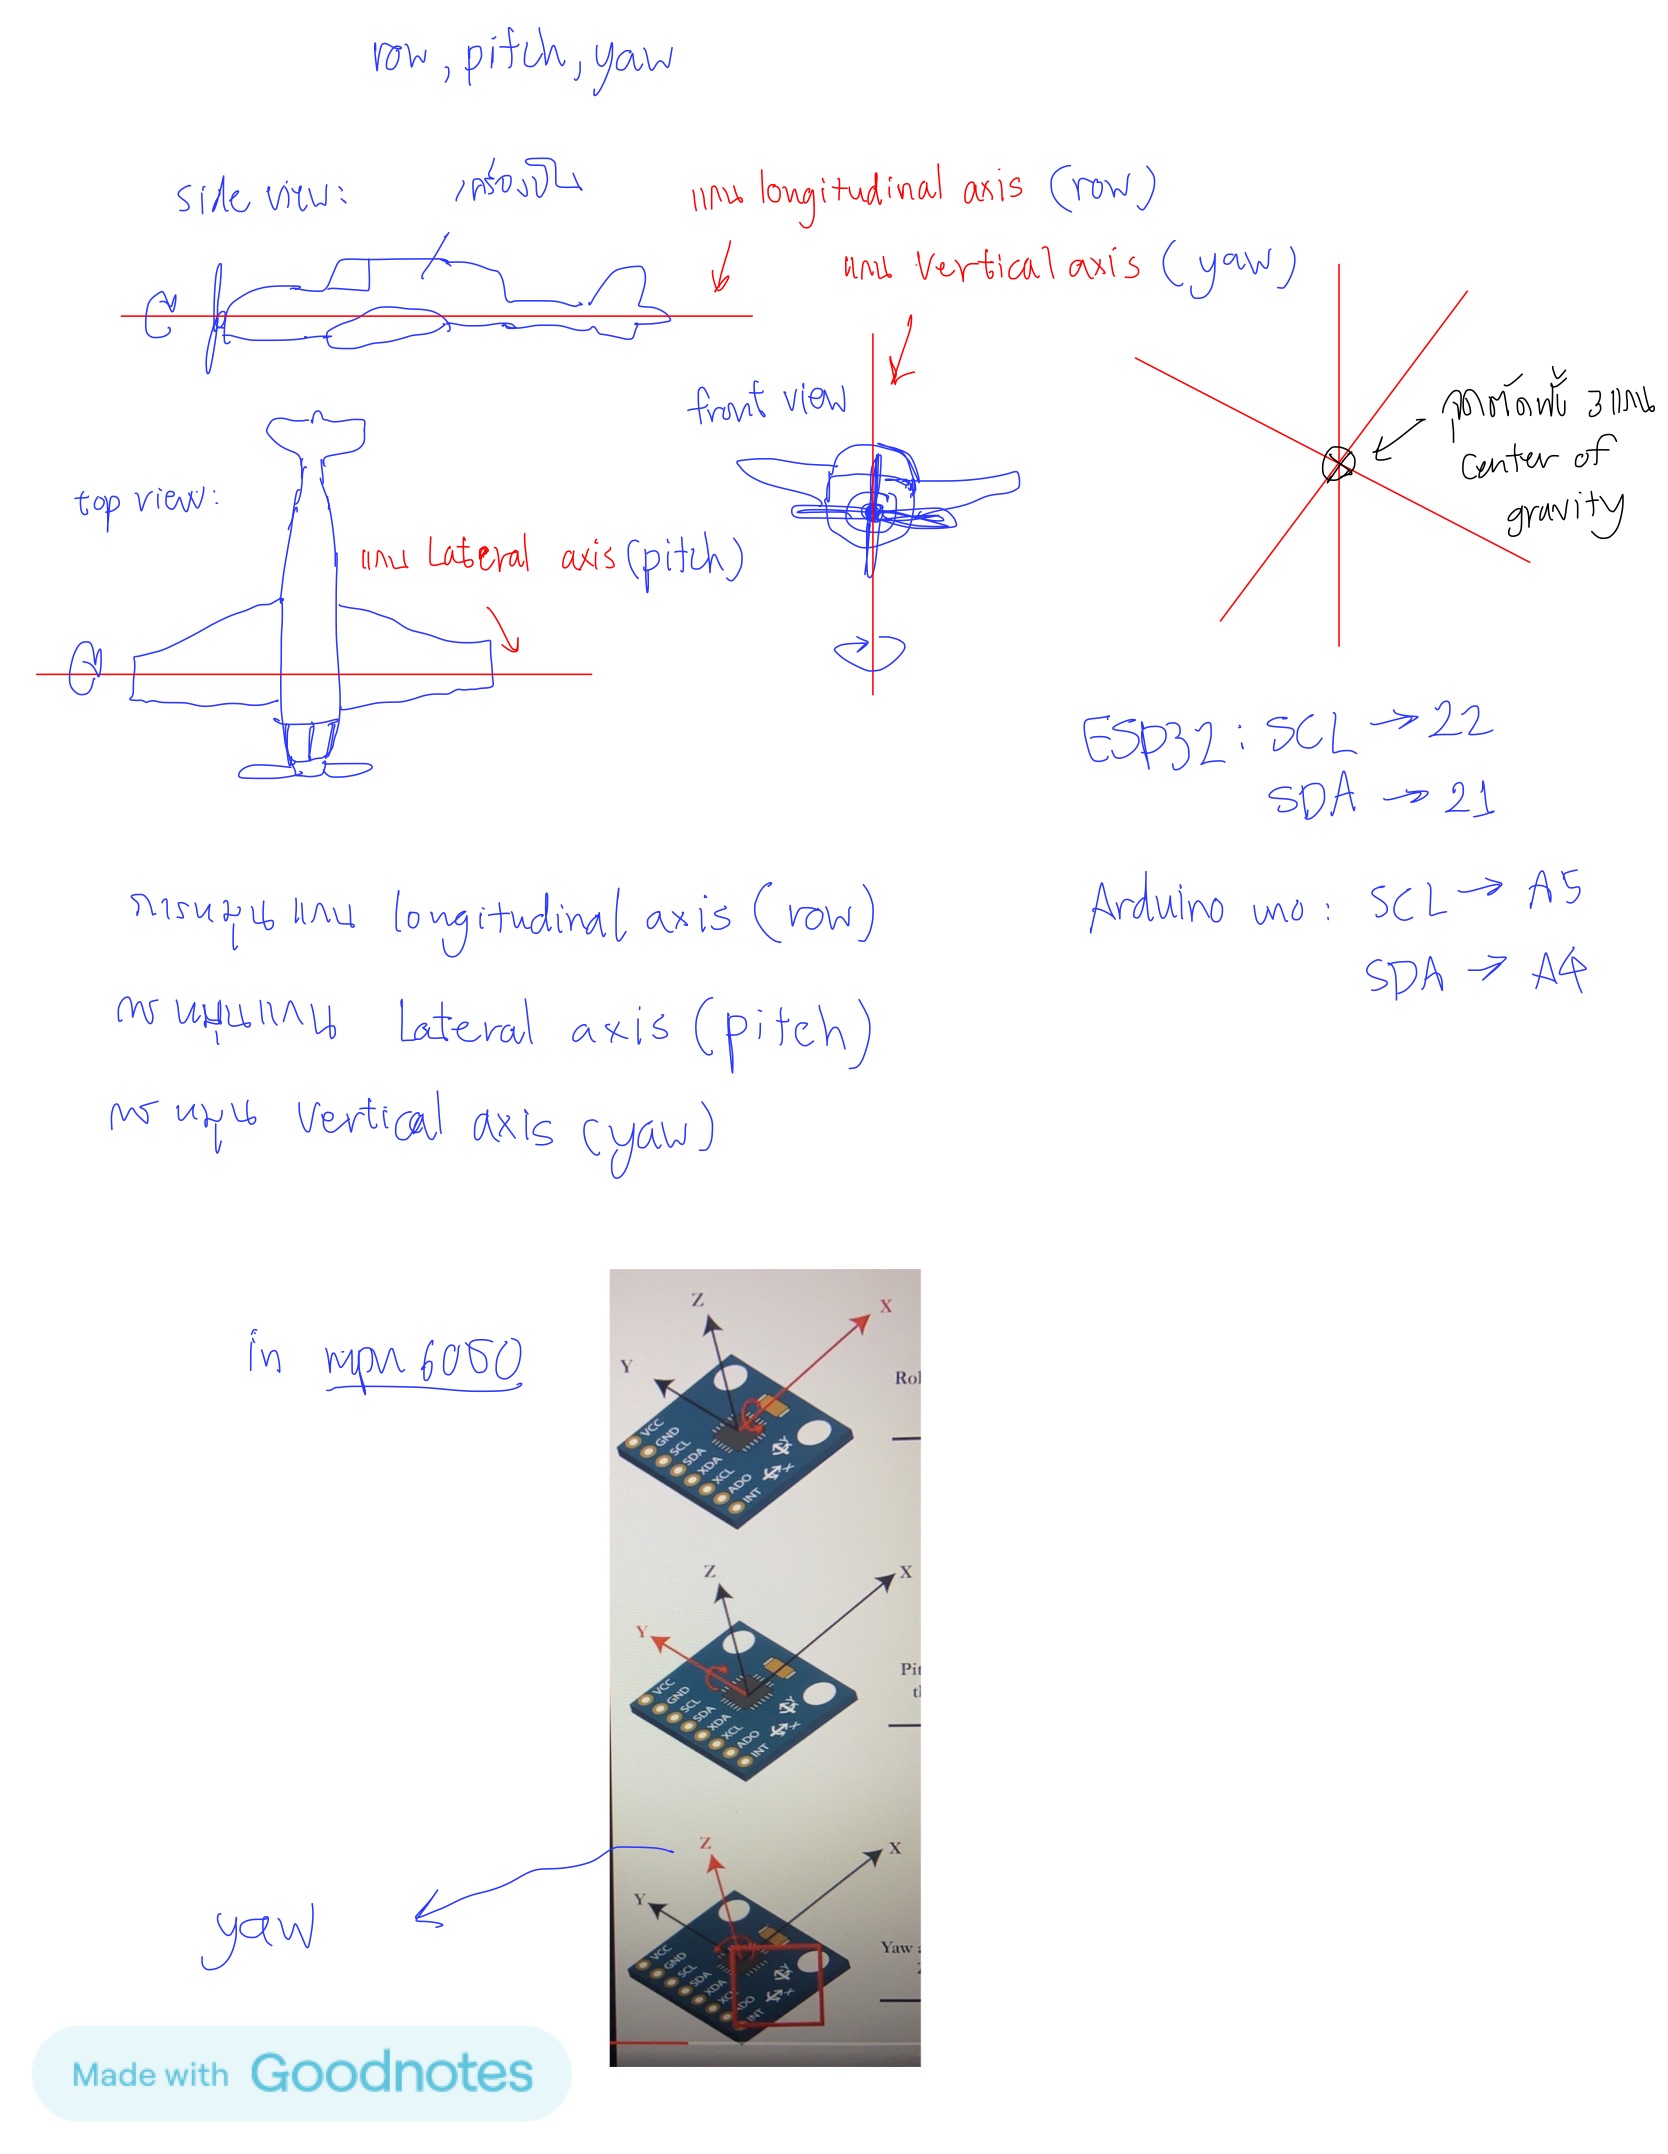 row, pitch, yaw
side view:
เครื่องบิน
แกน longitudinal axis (row)
แกน Vertical axis (yaw)
front view
จุดตัดทั้ง 3 แกน
center of
gravity
top view:
แกน Lateral axis (pitch)
ESP32: SCL → 22
SDA → 21
Arduino uno: SCL → A5
SDA → A4
การหมุนแกน longitudinal axis (row)
การหมุนแกน Lateral axis (pitch)
การหมุน Vertical axis (yaw)
in mpu 6050
Z
X
Y
Rol
VCC
GND
SCL
SDA
XDA
XCL
ADO
INT
Y
X
Z
X
Y
Pit
th
VCC
GND
SCL
SDA
XDA
XCL
ADO
INT
Y
X
Z
X
Y
Yaw
VCC
GND
SCL
SDA
XCL
ADO
INT
Y
X
yaw
Made with Goodnotes